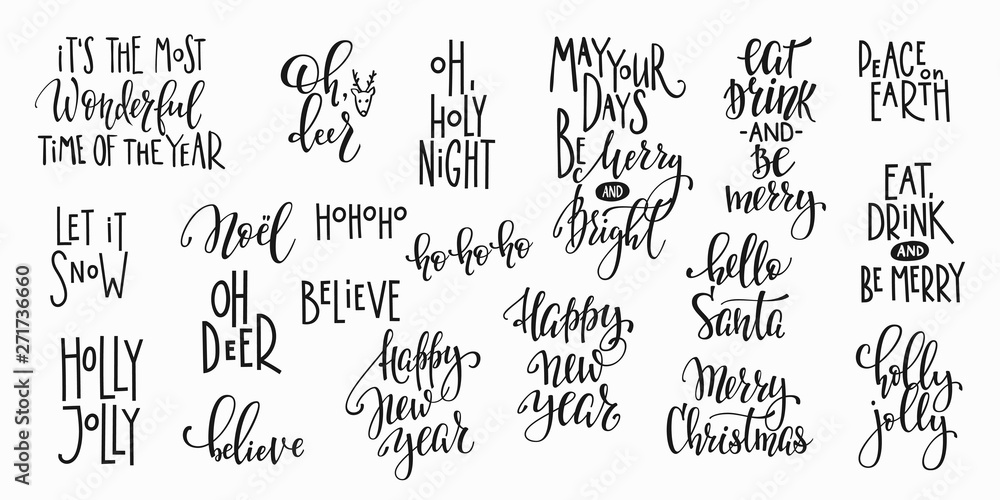 it's the most
Wonderful
time of the year
Oh,
deer
OH,
HOLY
NIGHT
MAY YOUR
DAYS
BE Merry
AND
Bright
eat
Drink
-AND-
Be
merry
PEACE on
EARTH
LET iT
SNOW
Noël
HOHOHO
ho ho ho
EAT,
DRINK
AND
BE MERRY
OH
DEER
BELIEVE
hello
Santa
HOLLY
JOLLY
believe
Happy
New
year
Happy
new
year
Merry
Christmas
holly
jolly
Adobe Stock | #271736660
Adobe Stock